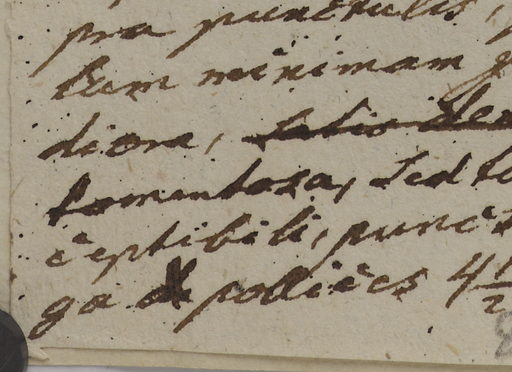 pra punctulis,
tum minimam
diora,
tomentosa, sed to
ceptibili, punct
ga pollices 4 1/2